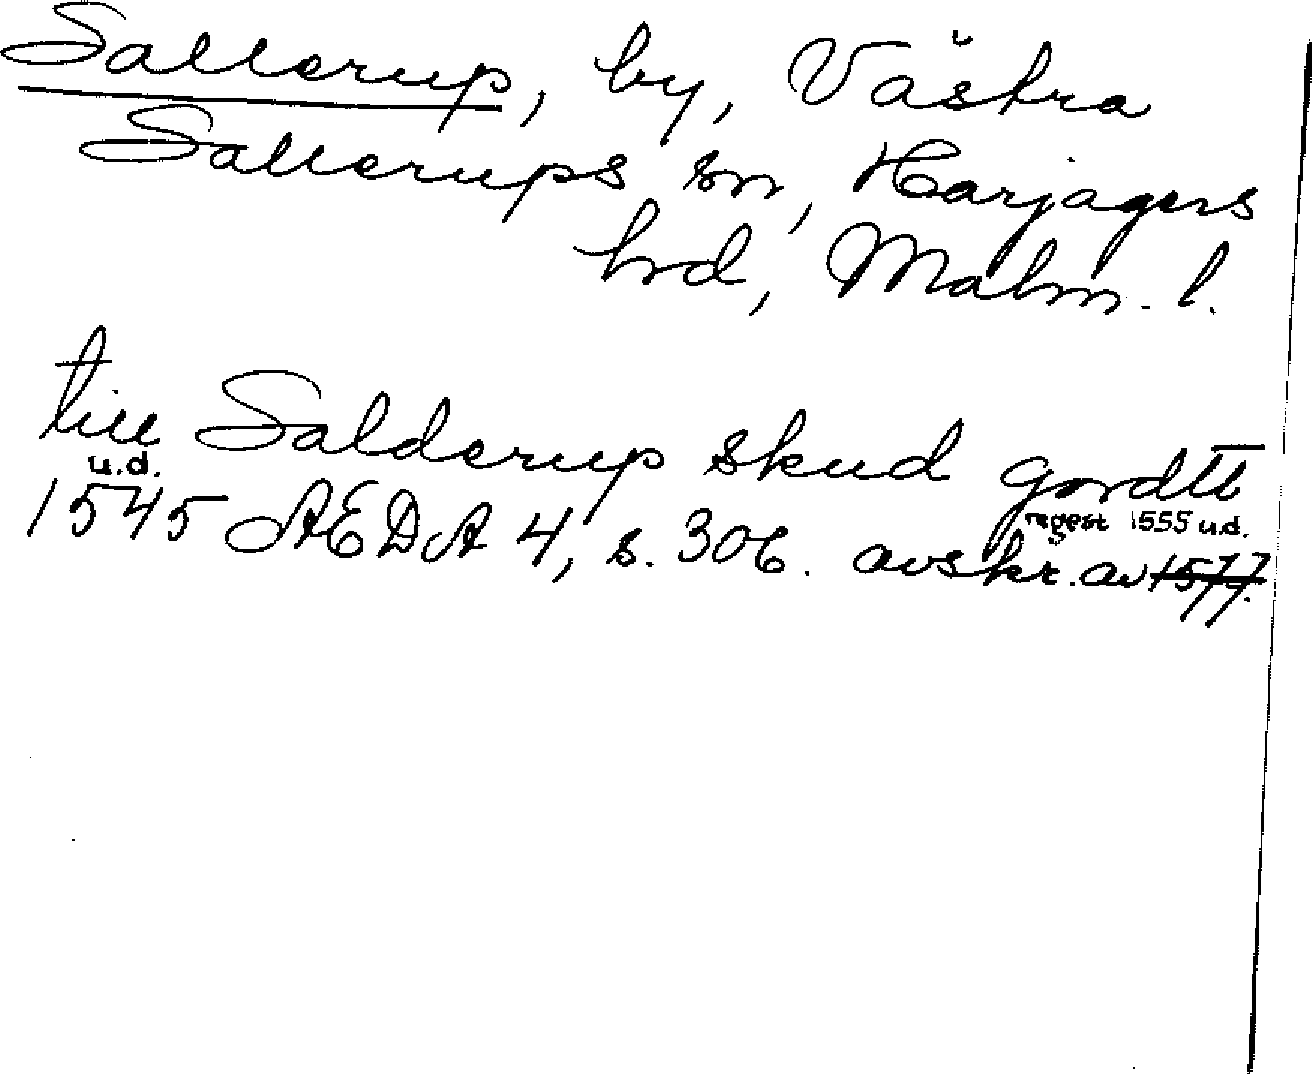 Sallerup, by, Västra
Sallerups sn, Harjagers
hd, Malm. l.
till Salderup skud gordtt
u.d.
1545 AEDA 4, s. 306. avskr. av 1577.
regest 1555 u.d.